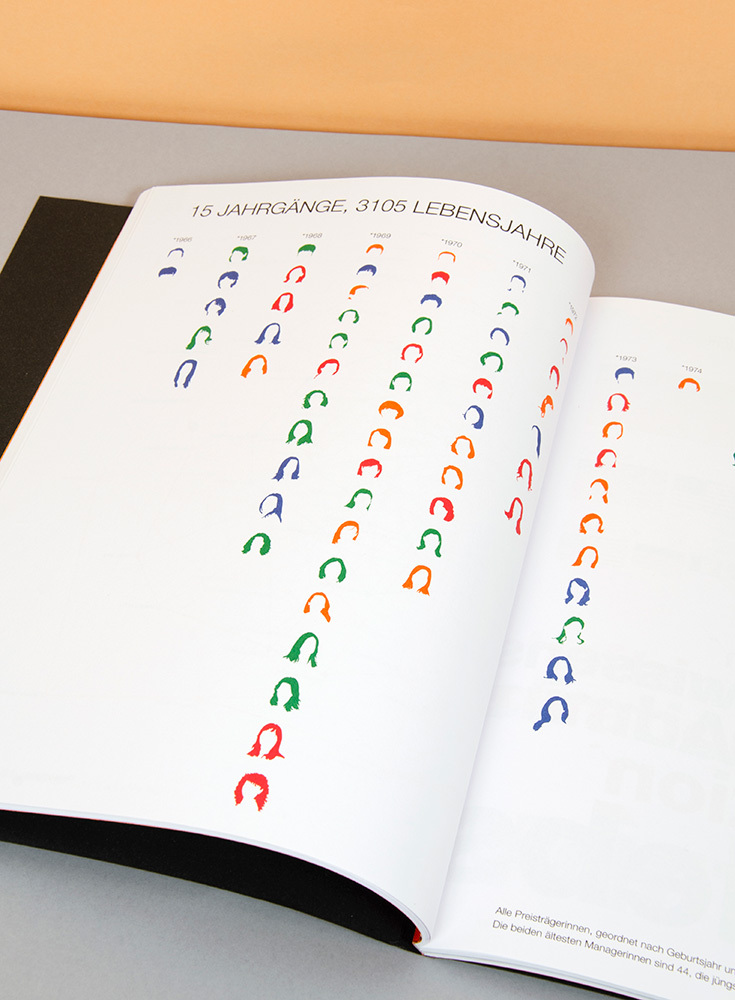 15 JAHRGÄNGE, 3105 LEBENSJAHRE
*1966
*1967
*1968
*1969
*1970
*1971
*1972
*1973
*1974
Alle Preisträgerinnen, geordnet nach Geburtsjahr un
Die beiden ältesten Managerinnen sind 44, die jüngs